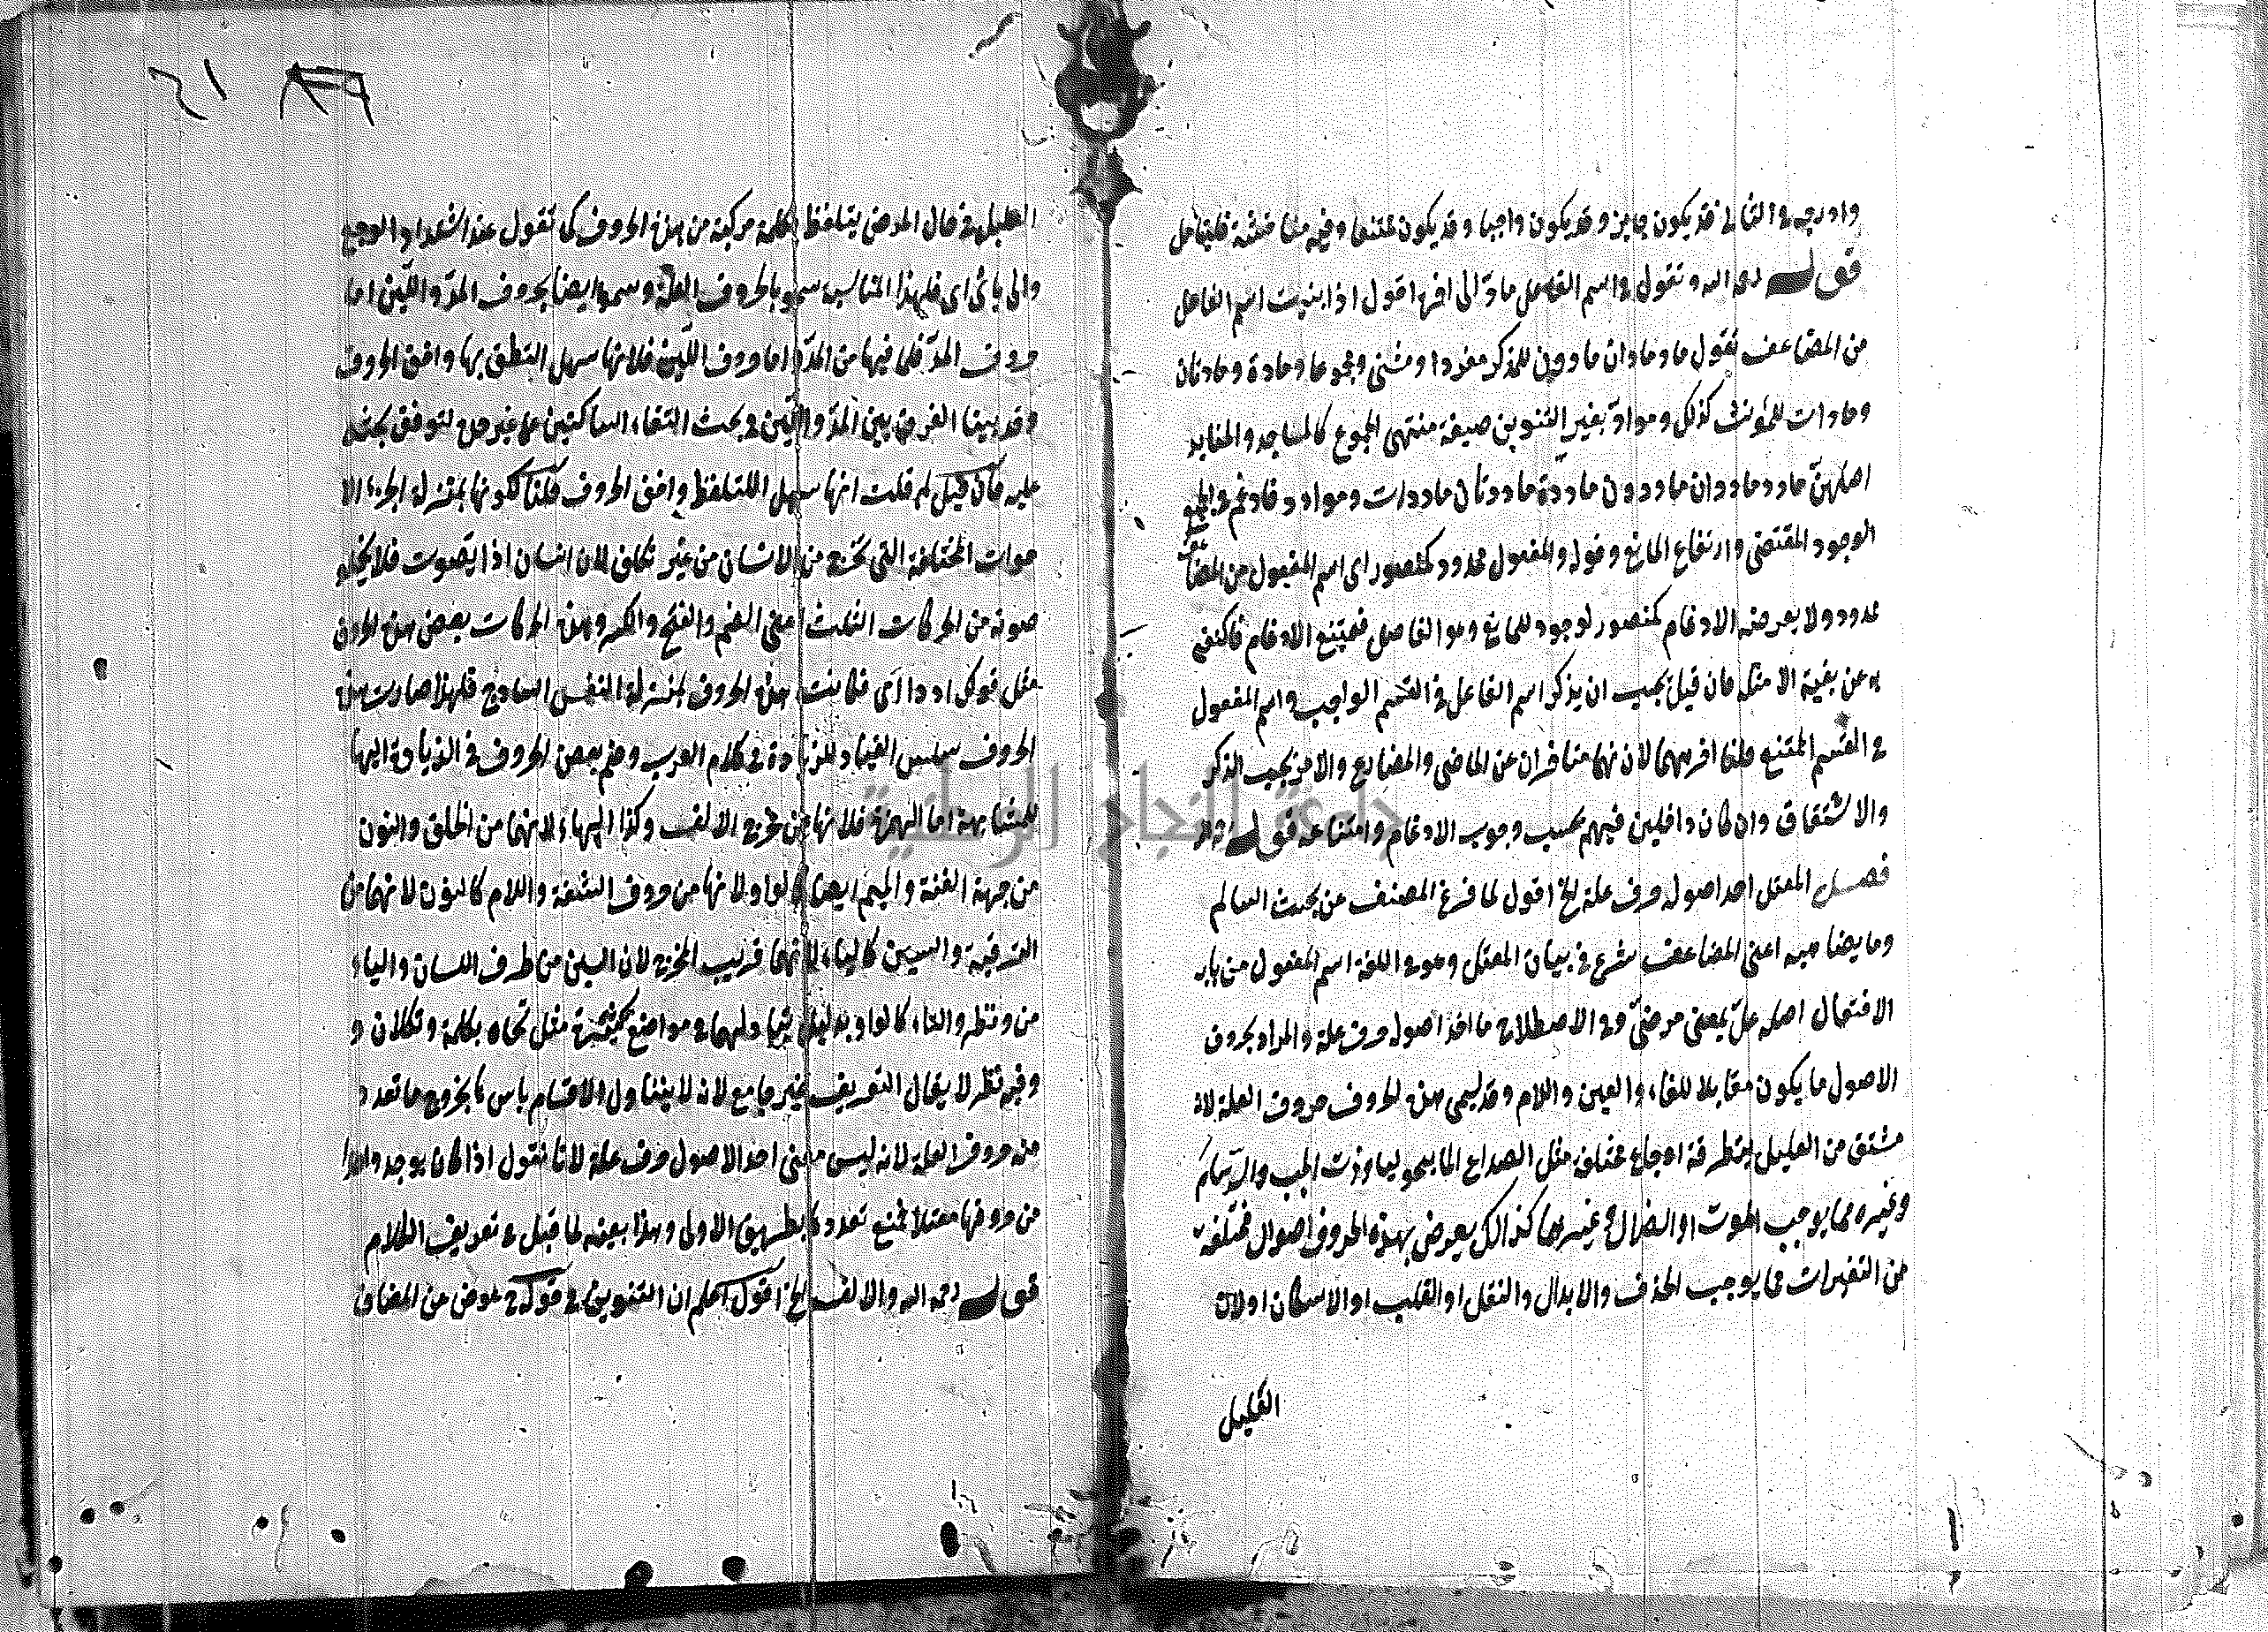 وادرجه في الثاني فقد يكون جايز وقد يكون واجبا وقد يكون ممتنعا وفيه مناقشة فليتامل
قوله رحمه الله وتقول في اسم الفاعل ماد الى اخرها اقول اذا بنيت اسم الفاعل
من المضاعف تقول ماد مادان مادون للمذكر مفردا ومثنى ومجموعا ومادة ومادتان
ومادات للمؤنث كذلك ومواد بغير التنوين صيغة منتهى الجموع كالمساجد والمنابر
اصلهن مادد ماددان ماددون ماددة ماددتان ماددات وموادد فادغم في الجميع
لوجود المقتضي وارتفاع المانع وقول والمفعول ممدود كمنصور اى اسم المفعول من المضاعف
ممدود ولا يعرضه الادغام كمنصور لوجود المانع وهو الفاصل فيمتنع الادغام فاكتفى
به عن بقية الامثلة فان قيل يجب ان يذكر اسم الفاعل في القسم الواجب واسم المفعول
في القسم الممتنع قلنا اخرهما لانهما متاخران عن الماضى والمضارع والامر بحسب الذكر
والاشتقاق وان كان داخلين فيهم بحسب وجوب الادغام وامتناعه قوله
فصل المعتل احد اصوله حرف علة الخ اقول لما فرغ المصنف عن بحث السالم
وما يضاهيه اعنى المضاعف شرع في بيان المعتل وهو في اللغة اسم المفعول من باب
الافتعال اصله علّ بمعنى مرض وفي الاصطلاح ما احد اصوله حرف علة والمراد بحروف
الاصول ما يكون مقابلا للفاء والعين واللام وقد يسمى هذه الحروف حروف العلة لانه
مشتق من العليل يتطرقه اوجاع مختلفة مثل الصداع الماليخوليا وذت الجنب والسرسام
وغيره مما يوجب الموت او الهزال وغيرها كذالك يعرض بهذه الحروف احوال مختلفة
من التغيرات مما يوجب الحذف والابدال والنقل او القلب او الاسكان او لان
العليل
العليل في حال المرض يتلفظ بكلمة مركبة من هذه الحروف كما تقول عند اشتداد الوجع
واى ياى اى فلهذا المناسبة سمو بالحروف العلة وسموا ايضا بحروف المد واللين اما
حروف المد فلما فيها من المد اما حروف اللين فلانها سهل التطق بها وافق الحروف
وقد بينا الفرق بين المد واللين في بحث التقاء الساكنين على غير حده لتوقف بحثه
عليه فان قيل لم قلت انها سهل التلفظ وافق الحروف قلنا لكونها بمنزلة الجزء الا
صوات المختلفة التى تخرج من الانسان من غير تكلف لان انسان اذا يصوت فلا يخلو
صوته من الحركات الثلث اعنى الضم والفتح والكسر وهذه الحركات بعض هذه الحروف
مثل قولك اد دا اى فكانت هذه الحروف بمنزلة النفس الساذج فلهذا صارت هذه
الحروف سلس القياد للزيادة في كلام العرب وضم بعض الحروف في الزيادة اليها
للمشابهة اما الهمزة فلانها من مخرج الالف وكذا الهاء لانهما من الحلق والنون
من جهة الغنة والميم ايضا كالواو لانها من حروف الشفة واللام كالنون لانهما من
الترقية والسين كالياء لانهما قريب المخرج لان السين من طرف اللسان والياء
من وسطه والتاء كالواو بدليل تبادلهما في مواضع كثيرة مثل تجاه بكلمة وتكلان و
وفيه نظر لا يقال التعريف غير جامع لانه لا يتناول الاقسام باسرها بخروج ما تعدد
منه حروف العلة لانه ليس معنى احد الاصول حرف علة لانا نقول اذا كان بوجد واحد
من حروفها معتلا فمع تعدد ما بطريق الاولى وهذا بعينه لما قيل في تعريف الكلام
قوله رحمه الله والالف الخ اقول اعلم ان التنوين في قوله عوض عن المضاف